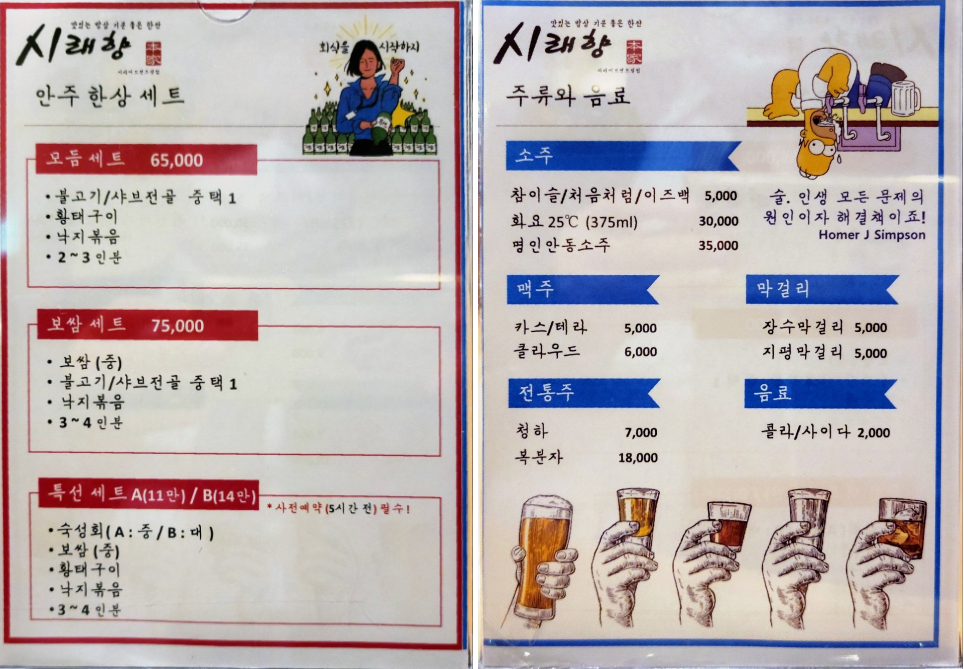 맛있는 밥상 기분 좋은 한잔
시래향
회식을 시작하시
안주 한상 세트
모듬 세트 65,000
• 불고기/샤브전골 중 택 1
• 황태구이
• 낙지볶음
• 2 ~ 3 인분
보쌈 세트 75,000
• 보쌈 (중)
• 불고기/샤브전골 중 택 1
• 낙지볶음
• 3 ~ 4 인분
특선 세트 A(11만) / B(14만)
* 사전예약 (5시간 전) 필수!
• 숙성회( A : 중 / B : 대 )
• 보쌈 (중)
• 황태구이
• 낙지볶음
• 3 ~ 4 인분
맛있는 밥상 기분 좋은 한잔
시래향
주류와 음료
소주
참이슬/처음처럼/이즈백 5,000
화요 25℃ (375ml) 30,000
명인안동소주 35,000
술. 인생 모든 문제의
원인이자 해결책이죠!
Homer J Simpson
맥주
카스/테라 5,000
클라우드 6,000
막걸리
장수막걸리 5,000
지평막걸리 5,000
전통주
청하 7,000
복분자 18,000
음료
콜라/사이다 2,000